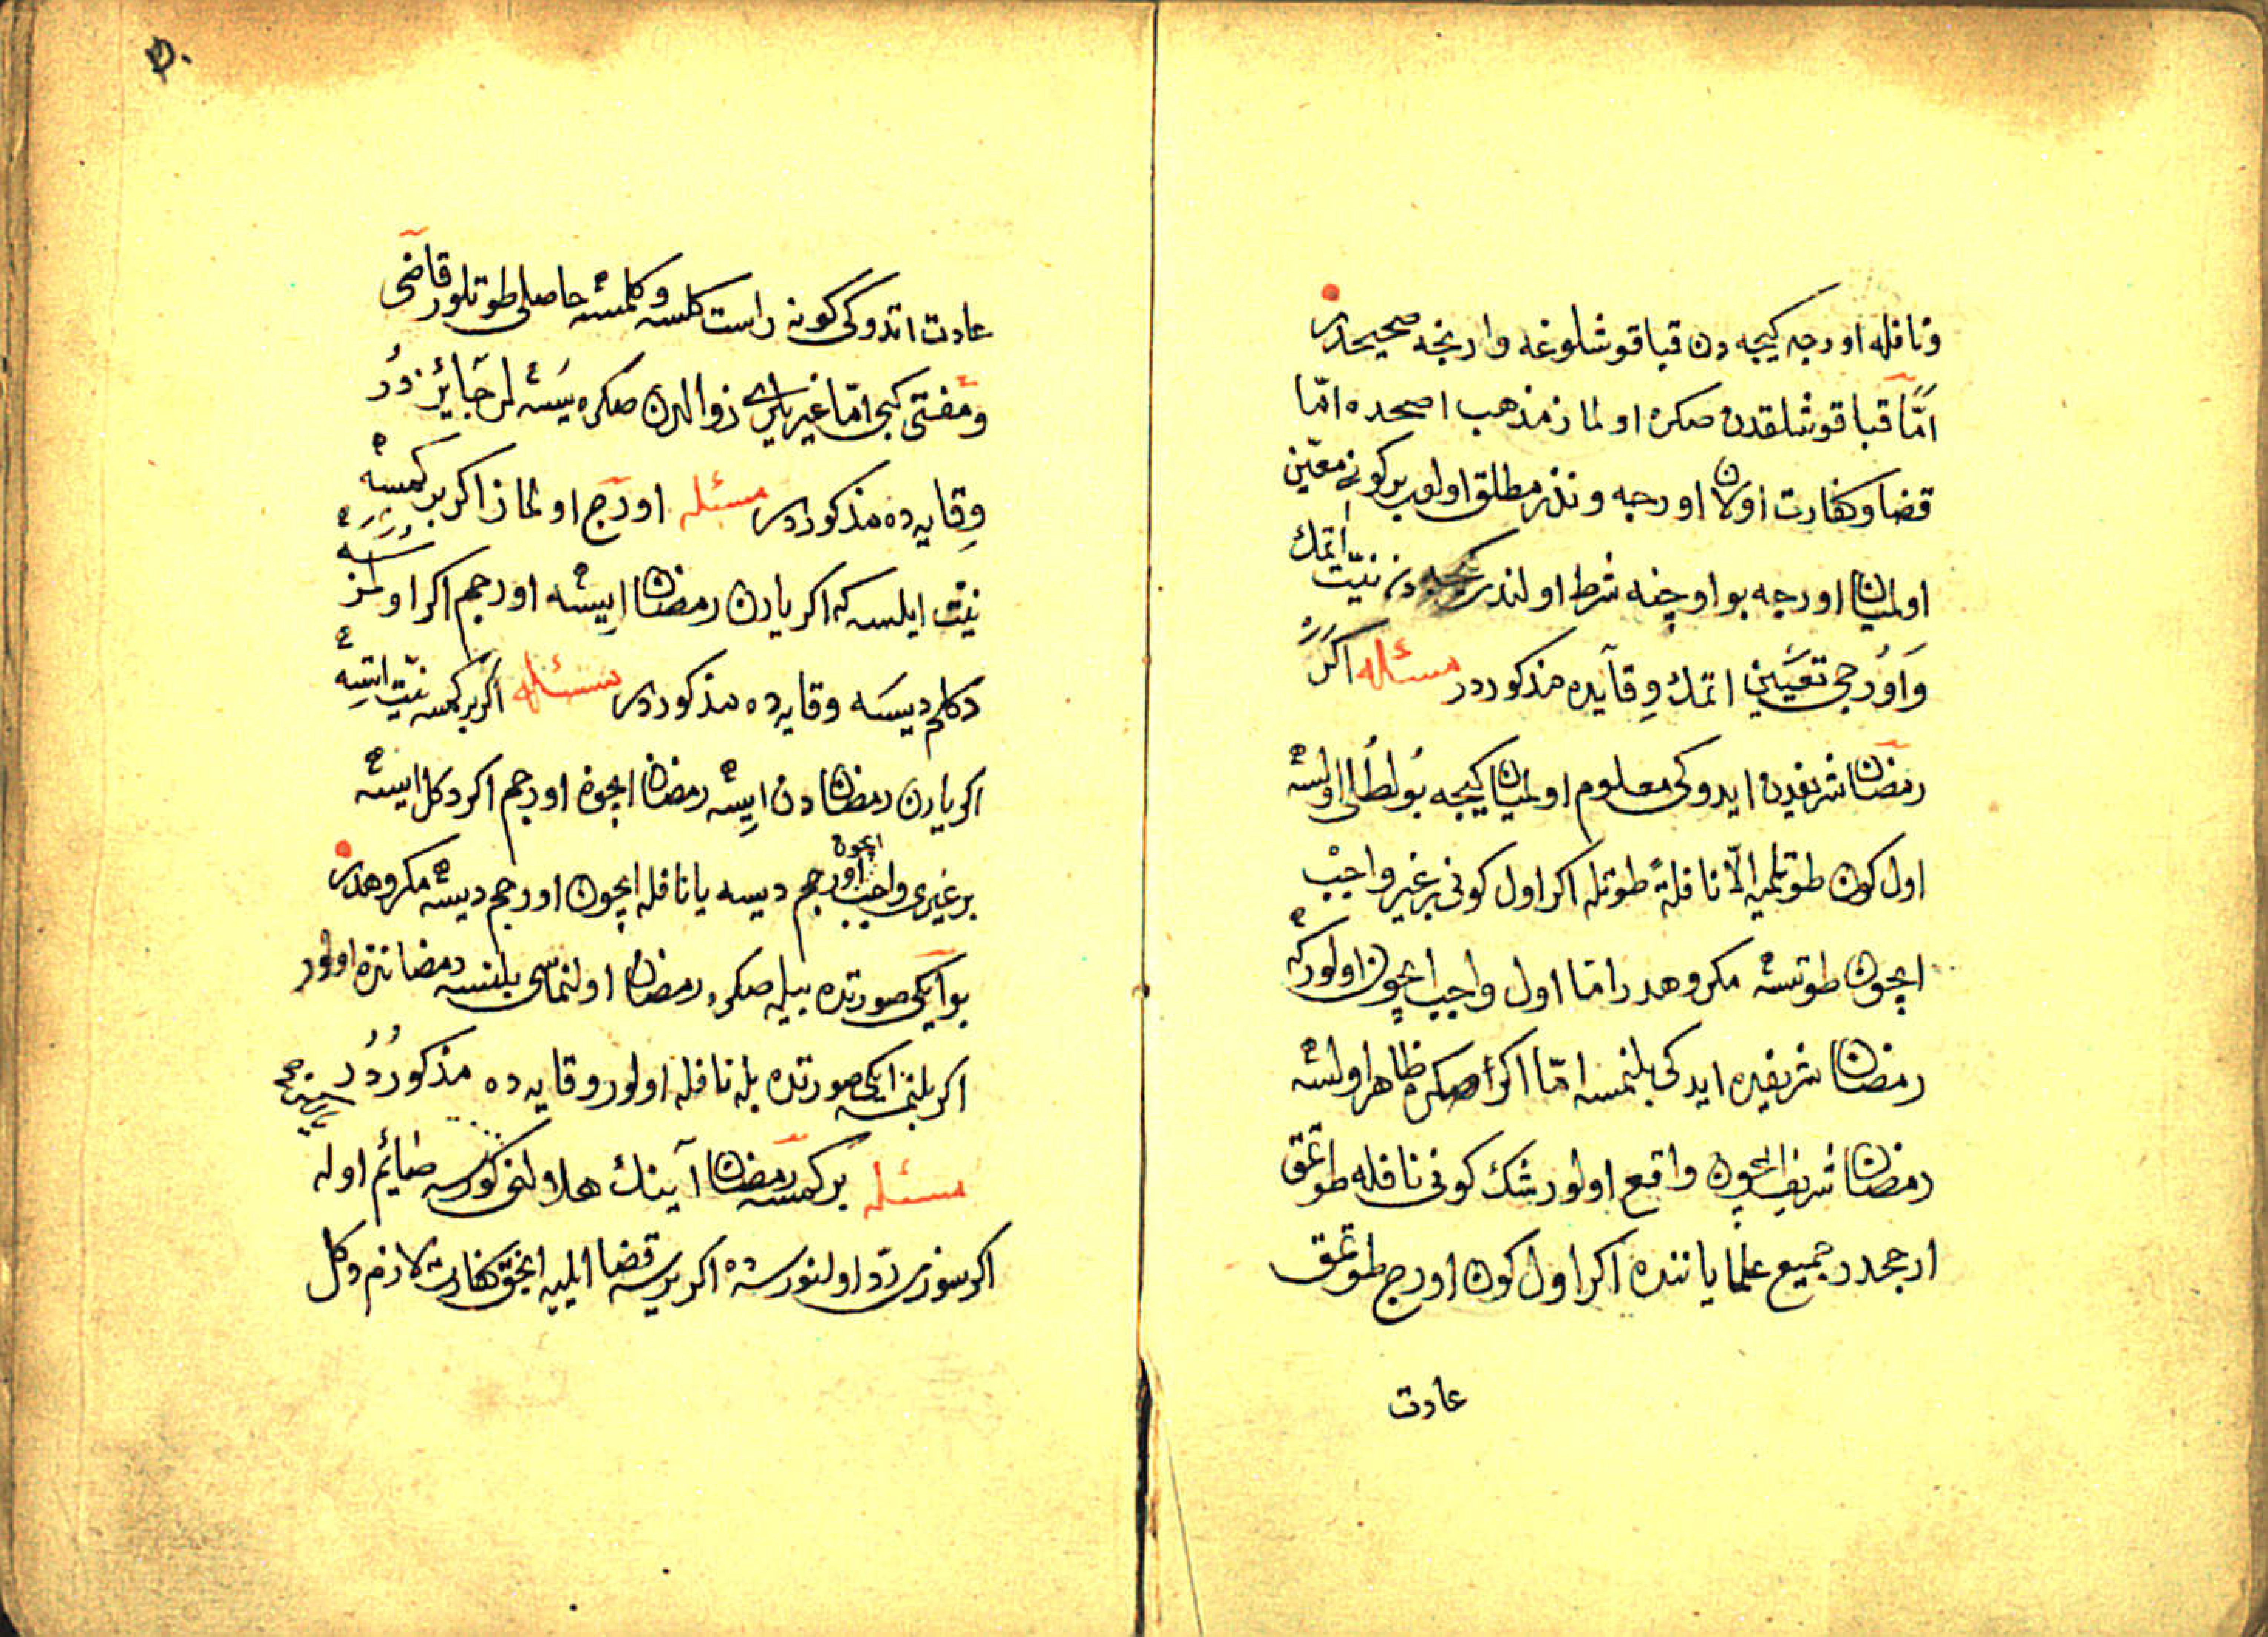 ونافله اورجه كيجه دن قباقوشلوغه وارنجه صحيحدر
امّا قباقوشلقدن صكره اولماز مذهب اصحده امّا
قضا وكفارت اولان اورجه ونذر مطلق اولوب بركونى معيّن
اولميان اورجه بو اوچنه شرط اولندر كيجه دن نيّت اتمك
وَاوُرجى تعيين اتمك وِقايه ده مذكوردر مسئله اكر
رمضان شريفدن ايدوكى معلوم اولميان كيجه بولطلى اولسه
اول كون طوتلميه الّا نافلةً طوتله اكر اول كونى بر غير واجب
ايچون طوتسه مكروهدر امّا اول واجب ايچون اولور كه
رمضان شريفده ايدكى بلنمسه امّا اكر صكره ظاهر اولسه
رمضان شريف ايچون واقع اولور شك كونى نافله طوتمق
ارجحدر جميع علما ياننده اكر اول كون اورج طوتمق
عادت
۵۰
عادت اتدوكى كونه راست كلسه وكلمسه حاصلى طوتلور قاضى
ومفتى كبى امّا غيريلرى زوالدن صكره يسه لر جائز دُر
وِقايه ده مذكوردر مسئله اورج اولماز اكر بر كمسه
نيّت ايلسه كه اكر يارن رمضان ايسه اورجم اكر اولمز سه
دكلم ديسه وقايه ده مذكوردر مسئله اكر بر كمسه نيّت اتسه
اكر يارن رمضان دن ايسه رمضان ايچون اورجم اكر دكل ايسه
بر غيرى واجب ايچون اورجم ديسه يا نافله ايچون اورجم ديسه مكروهدر
بو ايكى صورتده بيله صكره رمضان اولنماسى بلنسه رمضاندن اولور
اكر بلنمسه ايكى صورتده بله نافله اولور وقايه ده مذكوردُر
مسئله بر كمسه رمضان آينك هلاولنى كورسه صائم اوله
اكر سوزى ردّ اولنورسه ده اكر يرسه قضا ايليه انجق كفارت لازم دكل